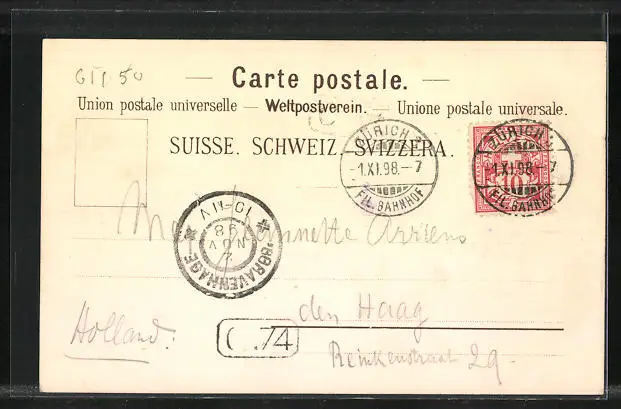 GIP 50
— Carte postale. —
Union postale universelle — Weltpostverein. — Unione postale universale.
SUISSE. SCHWEIZ. SVIZZERA.
ZÜRICH
-1.XI.98.-7
FIL. BAHNHOF
ZÜRICH
1.XI.98.-7
FIL. BAHNHOF
10
'SGRAVENHAGE
2 NOV 98
10-11V
Annette Arriens
den Haag
Holland.
74
Reinkenstraat 29.